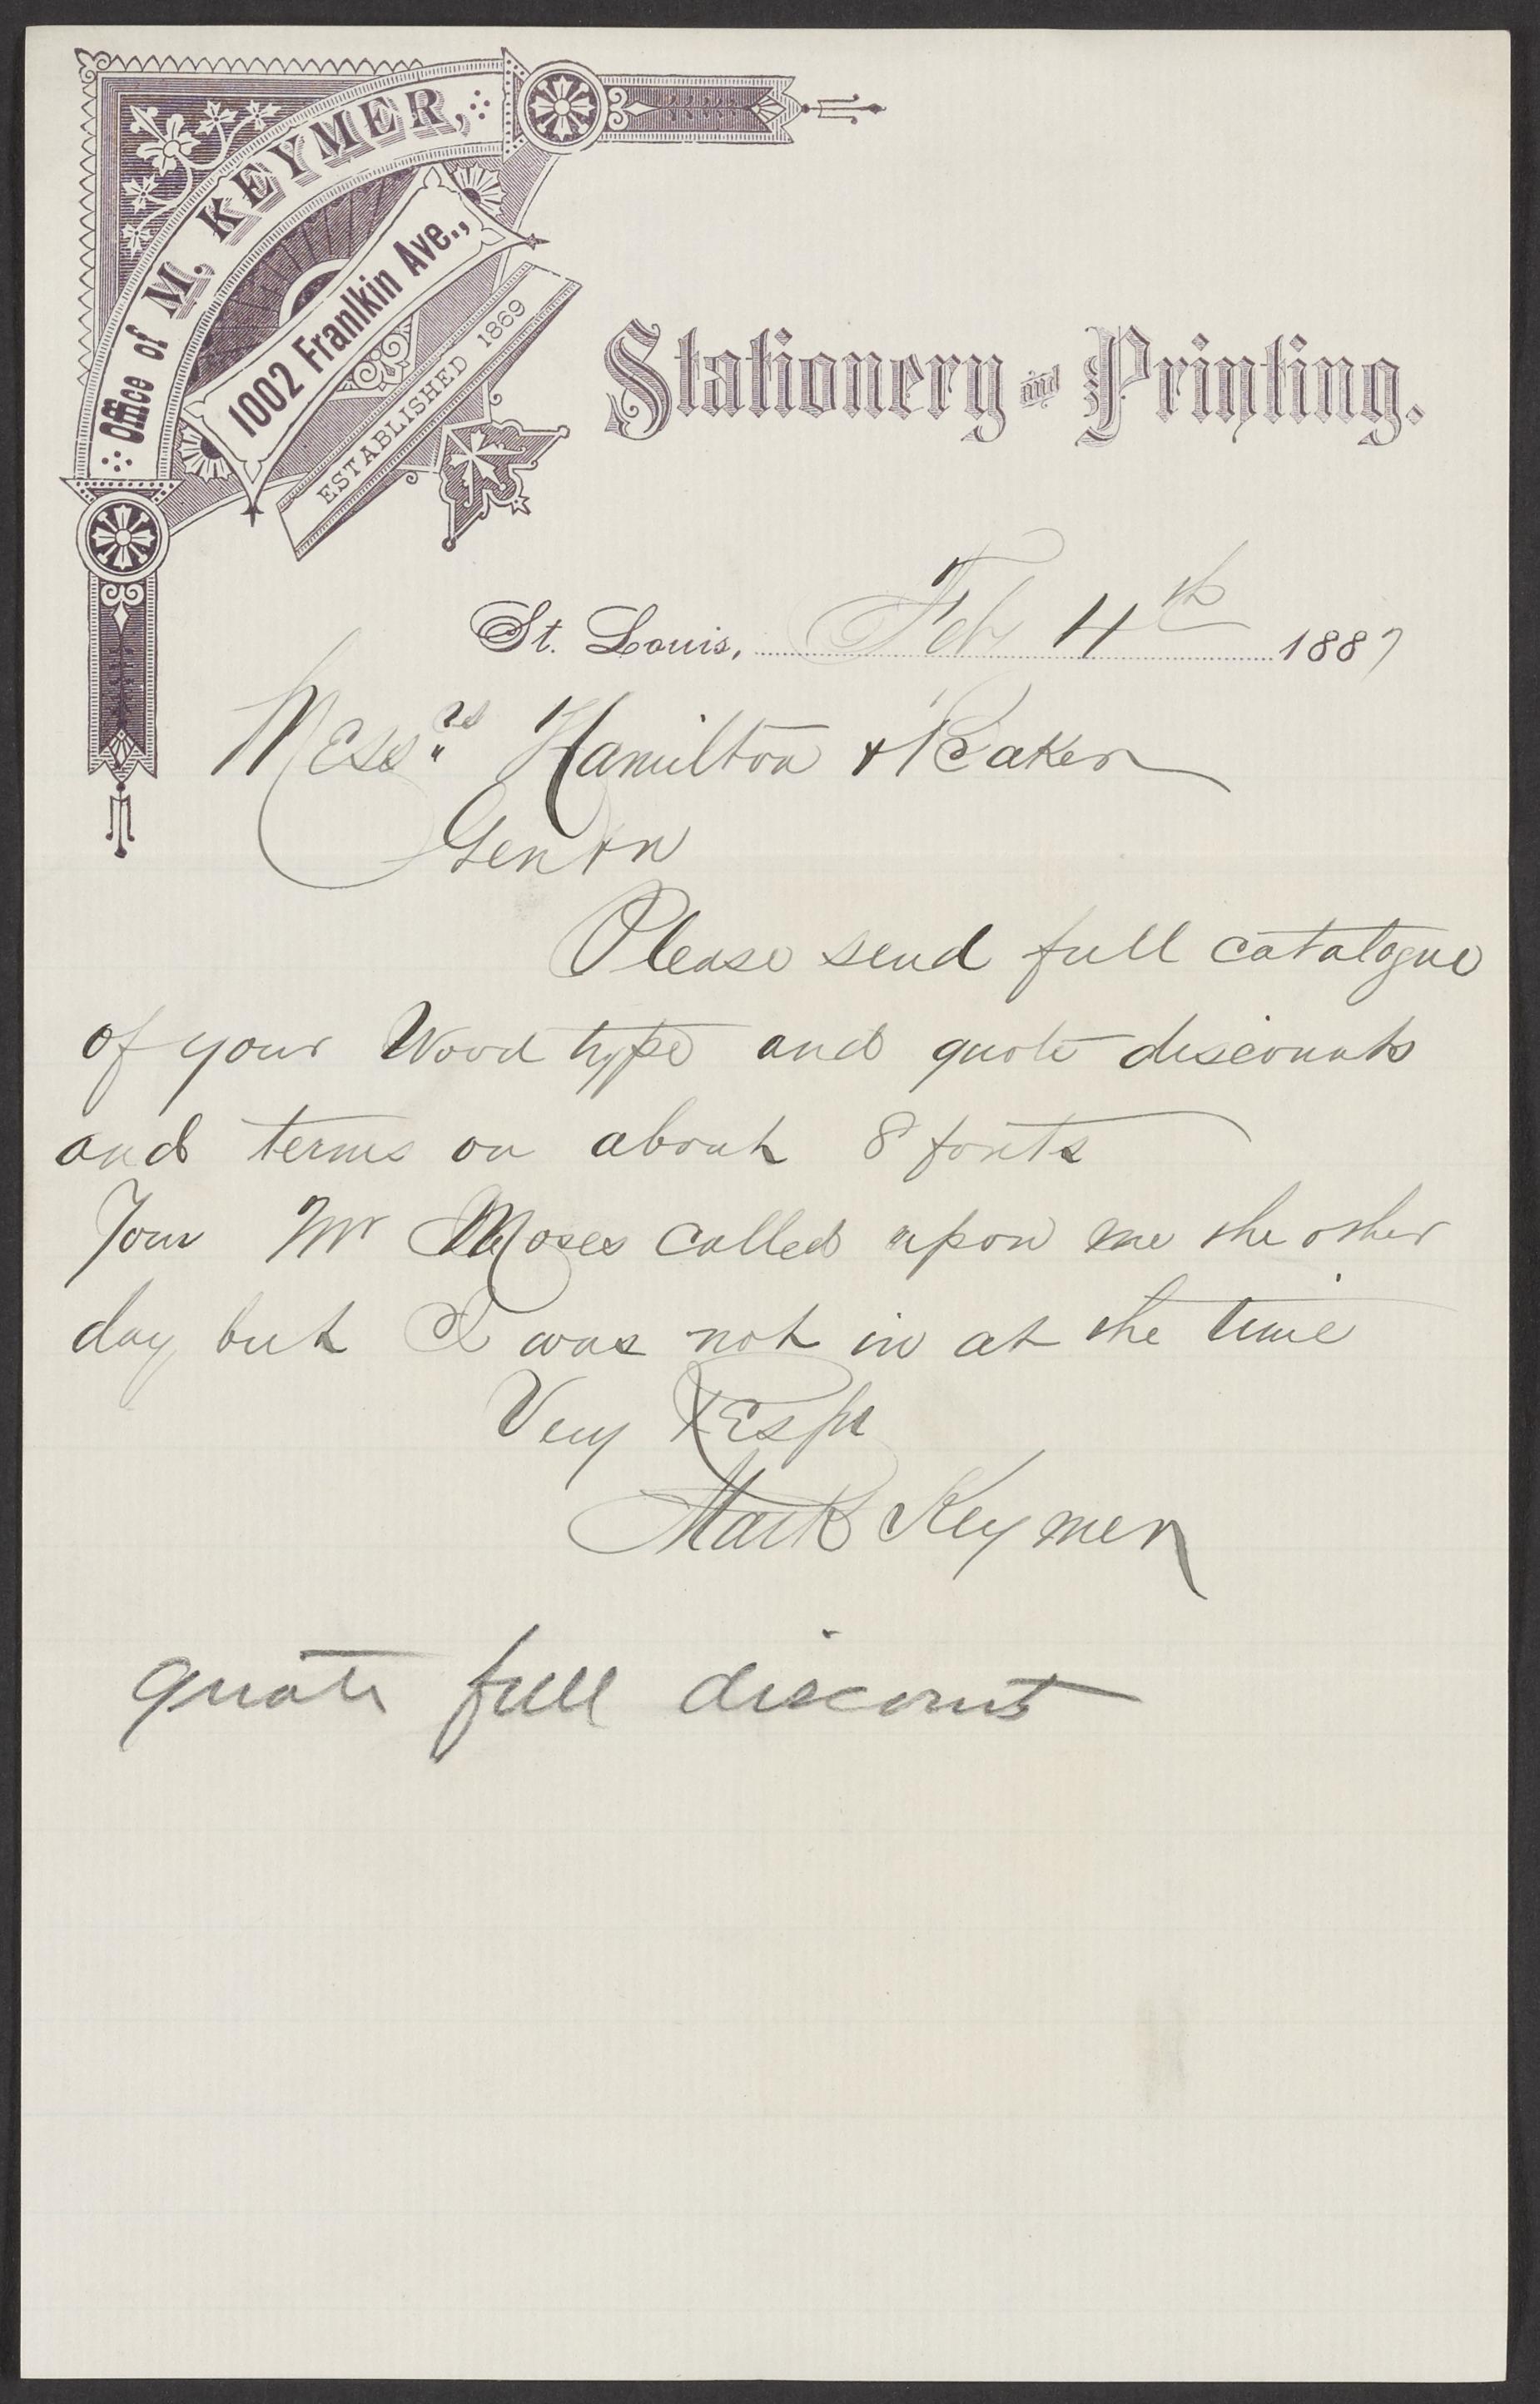 Office of M. KEYMER,
1002 Franlkin Ave.,
ESTABLISHED 1869
Stationery and Printing.
St. Louis, Feb 4th 1887
Messrs Hamilton & Baker
Gentn
Please send full catalogue
of your Wood type and quote discounts
and terms on about 8 fonts
Your Mr Moses called upon me the other
day but I was not in at the time
Very Respt
Mark Keymer
quote full discount